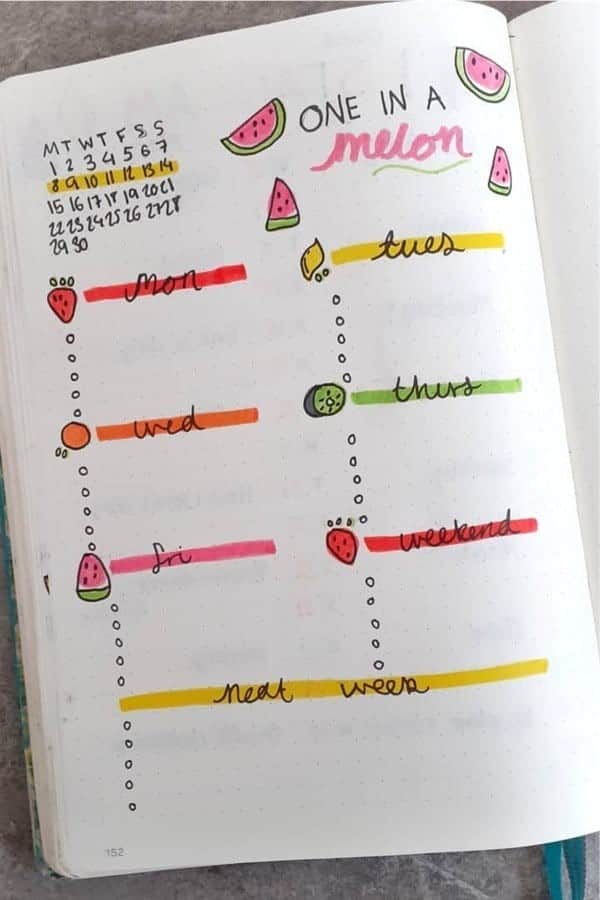 ONE IN A
melon
M T W T F S S
1 2 3 4 5 6 7
8 9 10 11 12 13 14
15 16 17 18 19 20 21
22 23 24 25 26 27 28
29 30
mon
tues
wed
thurs
fri
weekend
next week
152